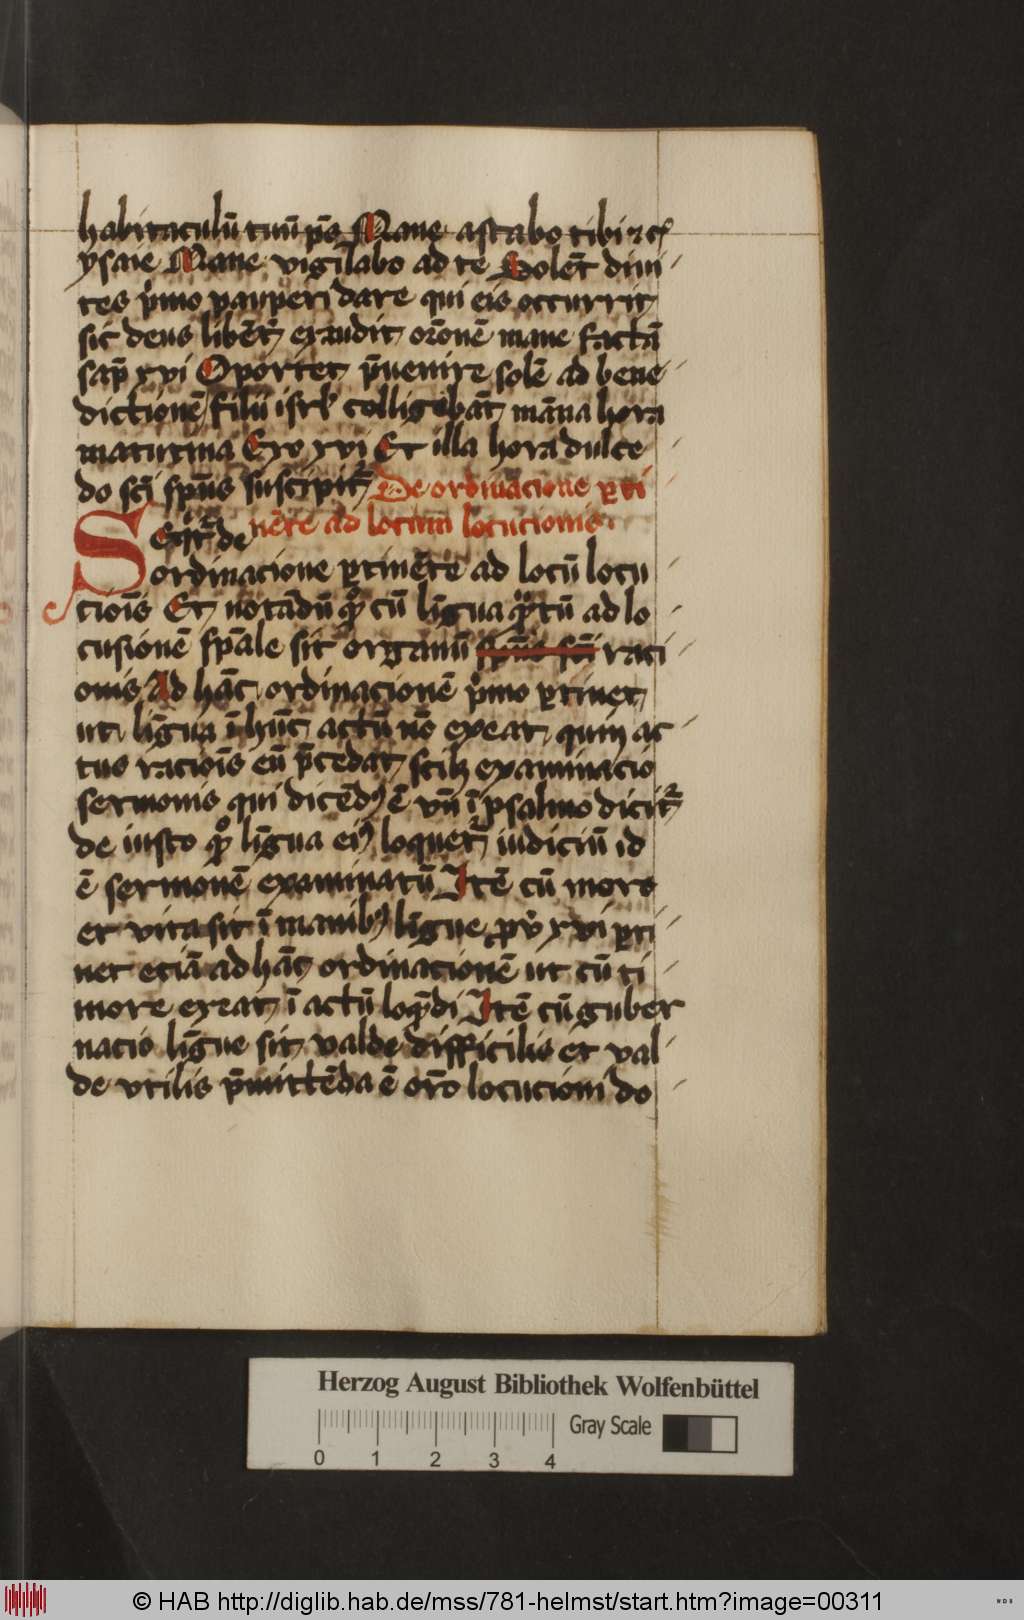 habitaculū tuū ps̄ Mane astabo tibi ⁊c̄
ysaie Mane vigilabo ad te Solēt diui
tes p̄mo pauperi dare qui eis occurrit
sic deus libēt exaudit orōnē mane factā
sap̄ xvi Oportet p̄uenire solē ad bene
dictionē filii isrl̄ colligebāt māna hora
matutina Exo xvi Et illa hora dulce
do sc̄i sp̄us suscipit̄ De ordinacione ꝑti
nēte ad locum locucionis
Seqr̄ de
ordinacione ꝑtinēte ad locū locu
ciōis Et notādū qͦ cū lingua qͣtū ad lo
cusionē sp̄ale sit organū sp̄us sc̄i raci
onis Ad hāc ordinacionē p̄mo ꝑtinet
ut lingua ī hūc actū nō exeat quin ac
tus raciōis eū p̄cedat scilꝫ examinacio
sermonis qui dicēdꝰ ē vn̄ ī psalmo dicit̄
de iusto qͦ lingua eiꝰ loquet̄ iudiciū id
ē sermonē examinatū Itē cū mors
et vita sit ī manibꝰ lingue prov̄ xviii ꝑti
net eciā ad hāc ordinacionē ut cū ti
more exeat ī actū loq̄ndi Itē cū guber
nacio lingue sit valde difficilis et val
de vtilis p̄mittēda ē orō locucioni do
Herzog August Bibliothek Wolfenbüttel
Gray Scale
0 1 2 3 4
© HAB http://diglib.hab.de/mss/781-helmst/start.htm?image=00311